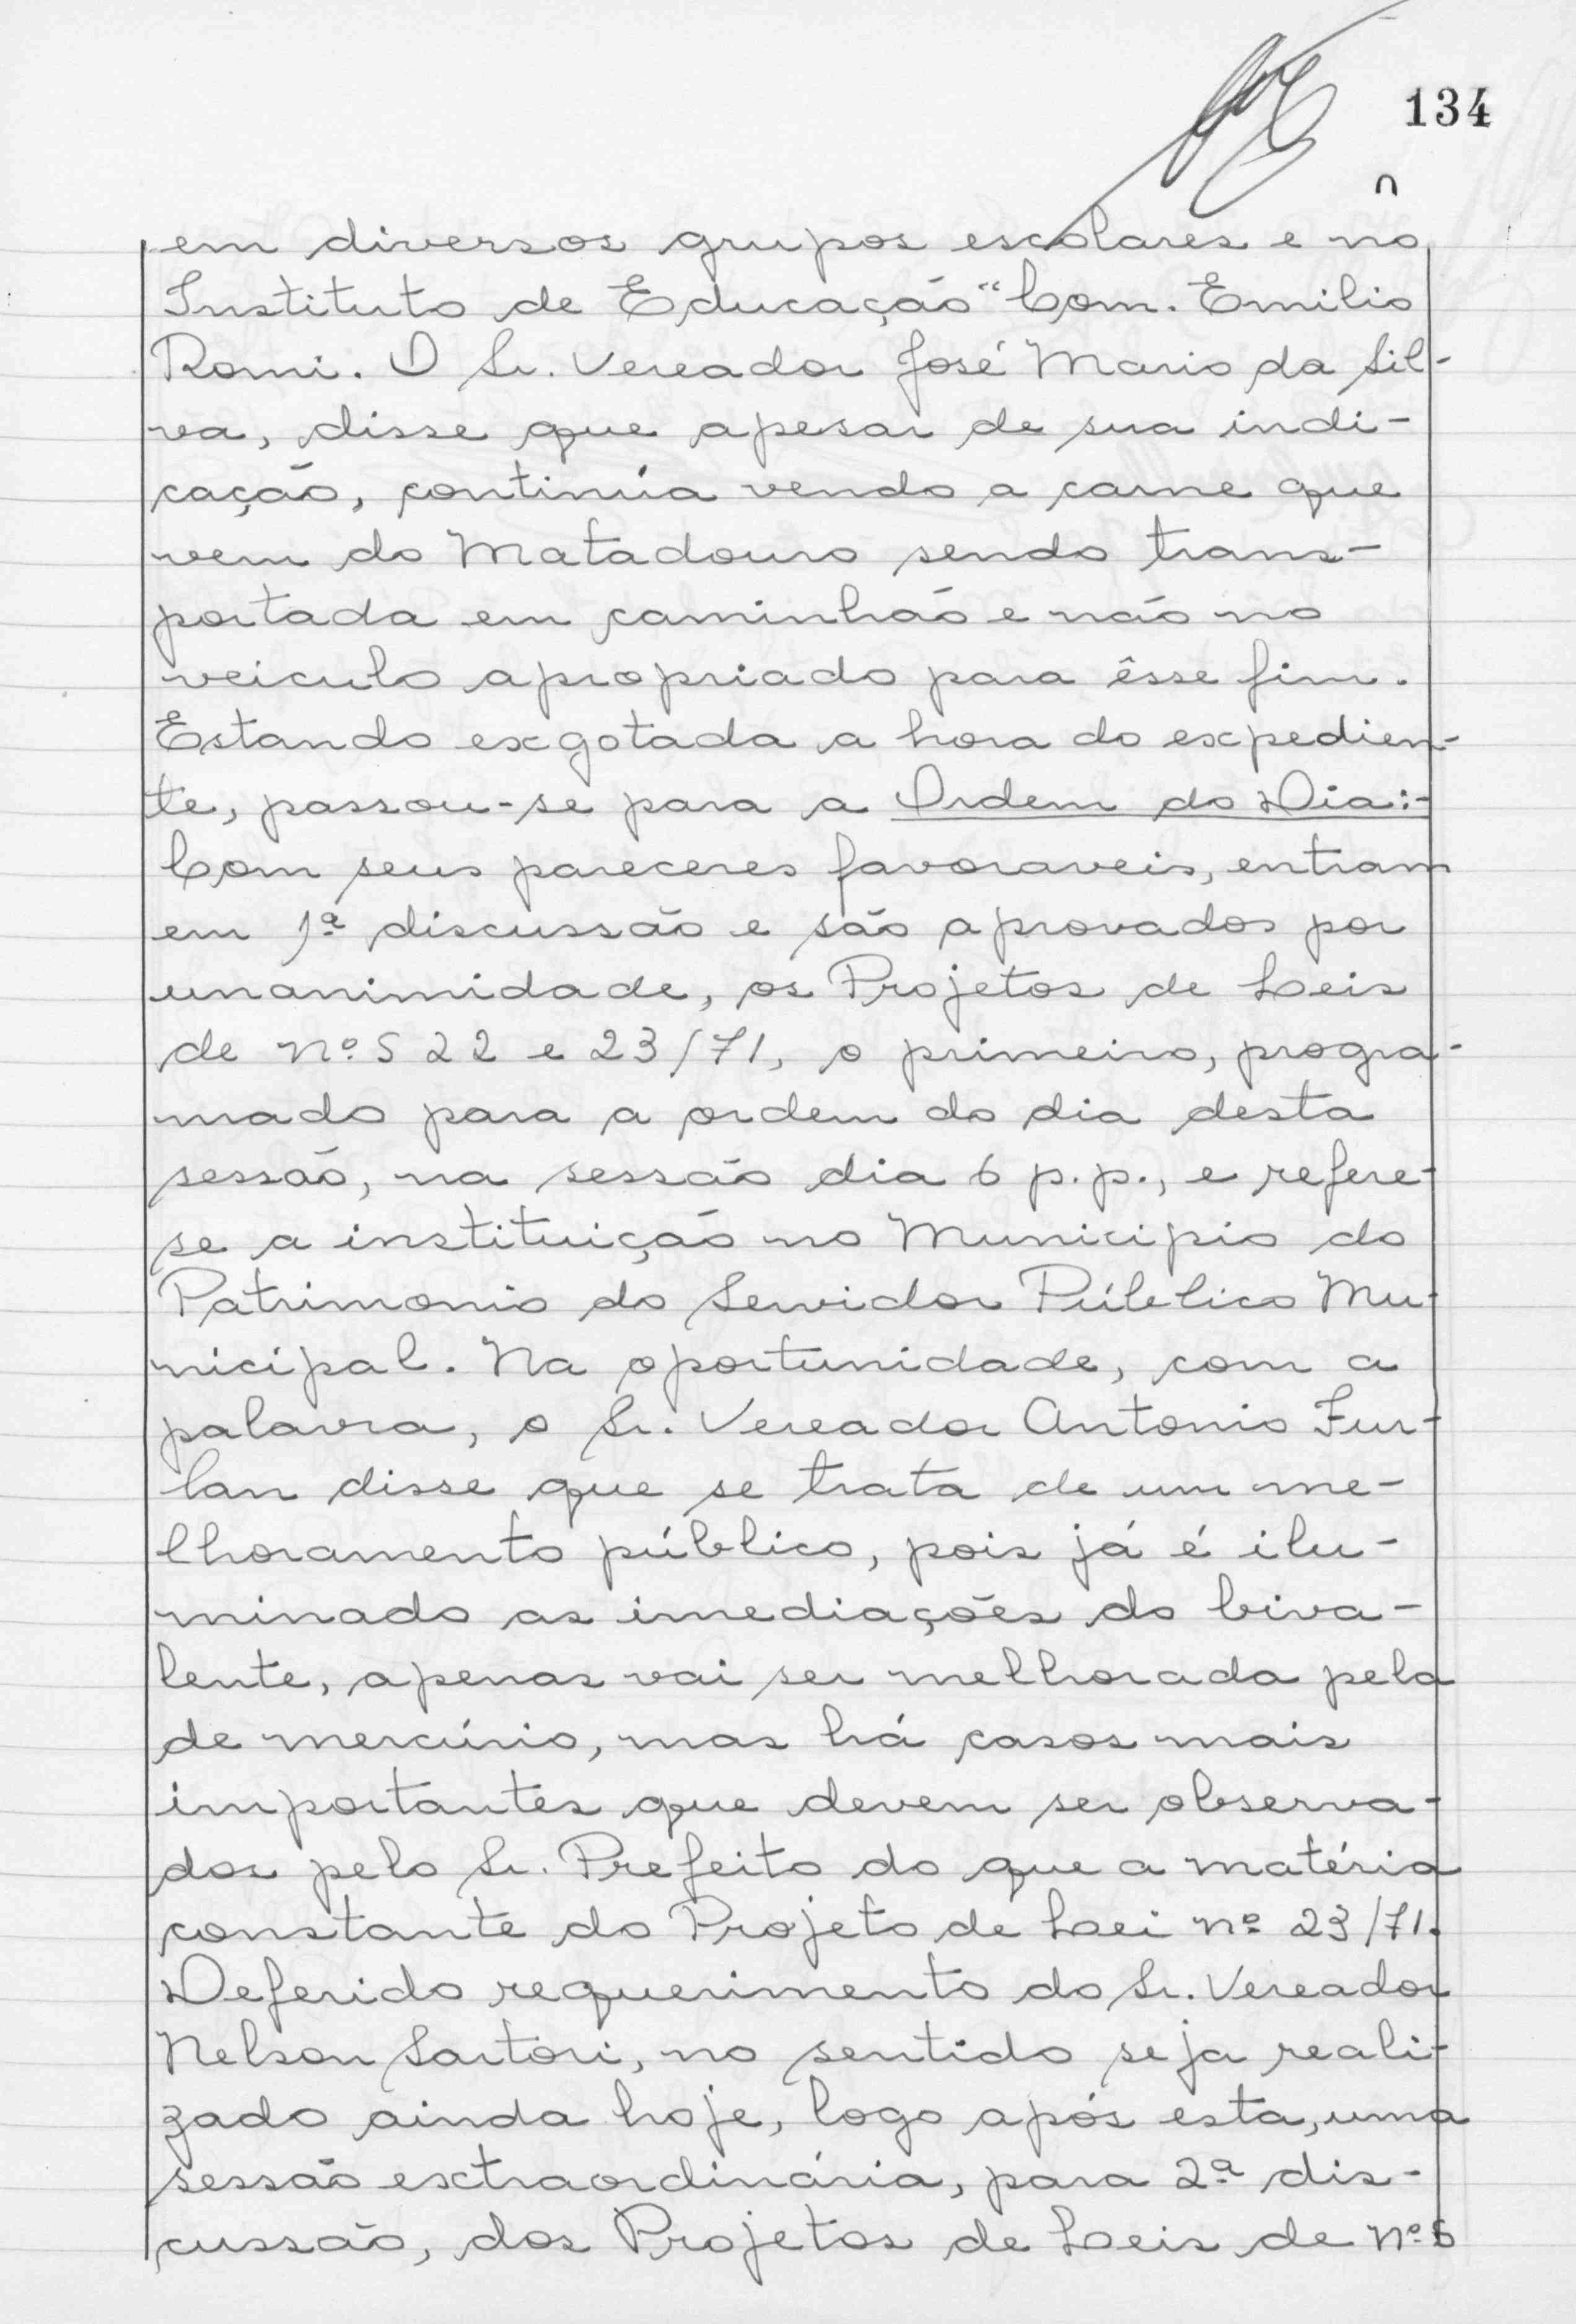 134
em diversos grupos escolares e no
Instituto de Educação "Com. Emilio
Romi. O Sr. Vereador José Mario da Sil-
va, disse que apesar de sua indi-
cação, continúa vendo a carne que
vem do Matadouro sendo trans-
portada em caminhão e não no
veiculo apropriado para êsse fim.
Estando exgotada a hora do expedien-
te, passou-se para a Ordem do Dia:-
Com seus pareceres favoraveis, entram
em 1ª discussão e são aprovados por
unanimidade, os Projetos de Leis
de nºs 22 e 23/71, o primeiro, progra-
mado para a ordem do dia desta
sessão, na sessão dia 6 p.p., e refere-
se a instituição no Municipio do
Patrimonio do Servidor Público Mu-
nicipal. Na oportunidade, com a
palavra, o Sr. Vereador Antonio Fur-
lan disse que se trata de um me-
lhoramento público, pois já é ilu-
minado as imediações do biva-
lente, apenas vai ser melhorada pela
de mercúrio, mas há casos mais
importantes que devem ser observa-
dos pelo Sr. Prefeito do que a matéria
constante do Projeto de Lei nº 23/71.
Deferido requerimento do Sr. Vereador
Nelson Sartori, no sentido seja reali-
zado ainda hoje, logo após esta, uma
sessão extraordinária, para 2ª dis-
cussão, dos Projetos de Leis de nºs